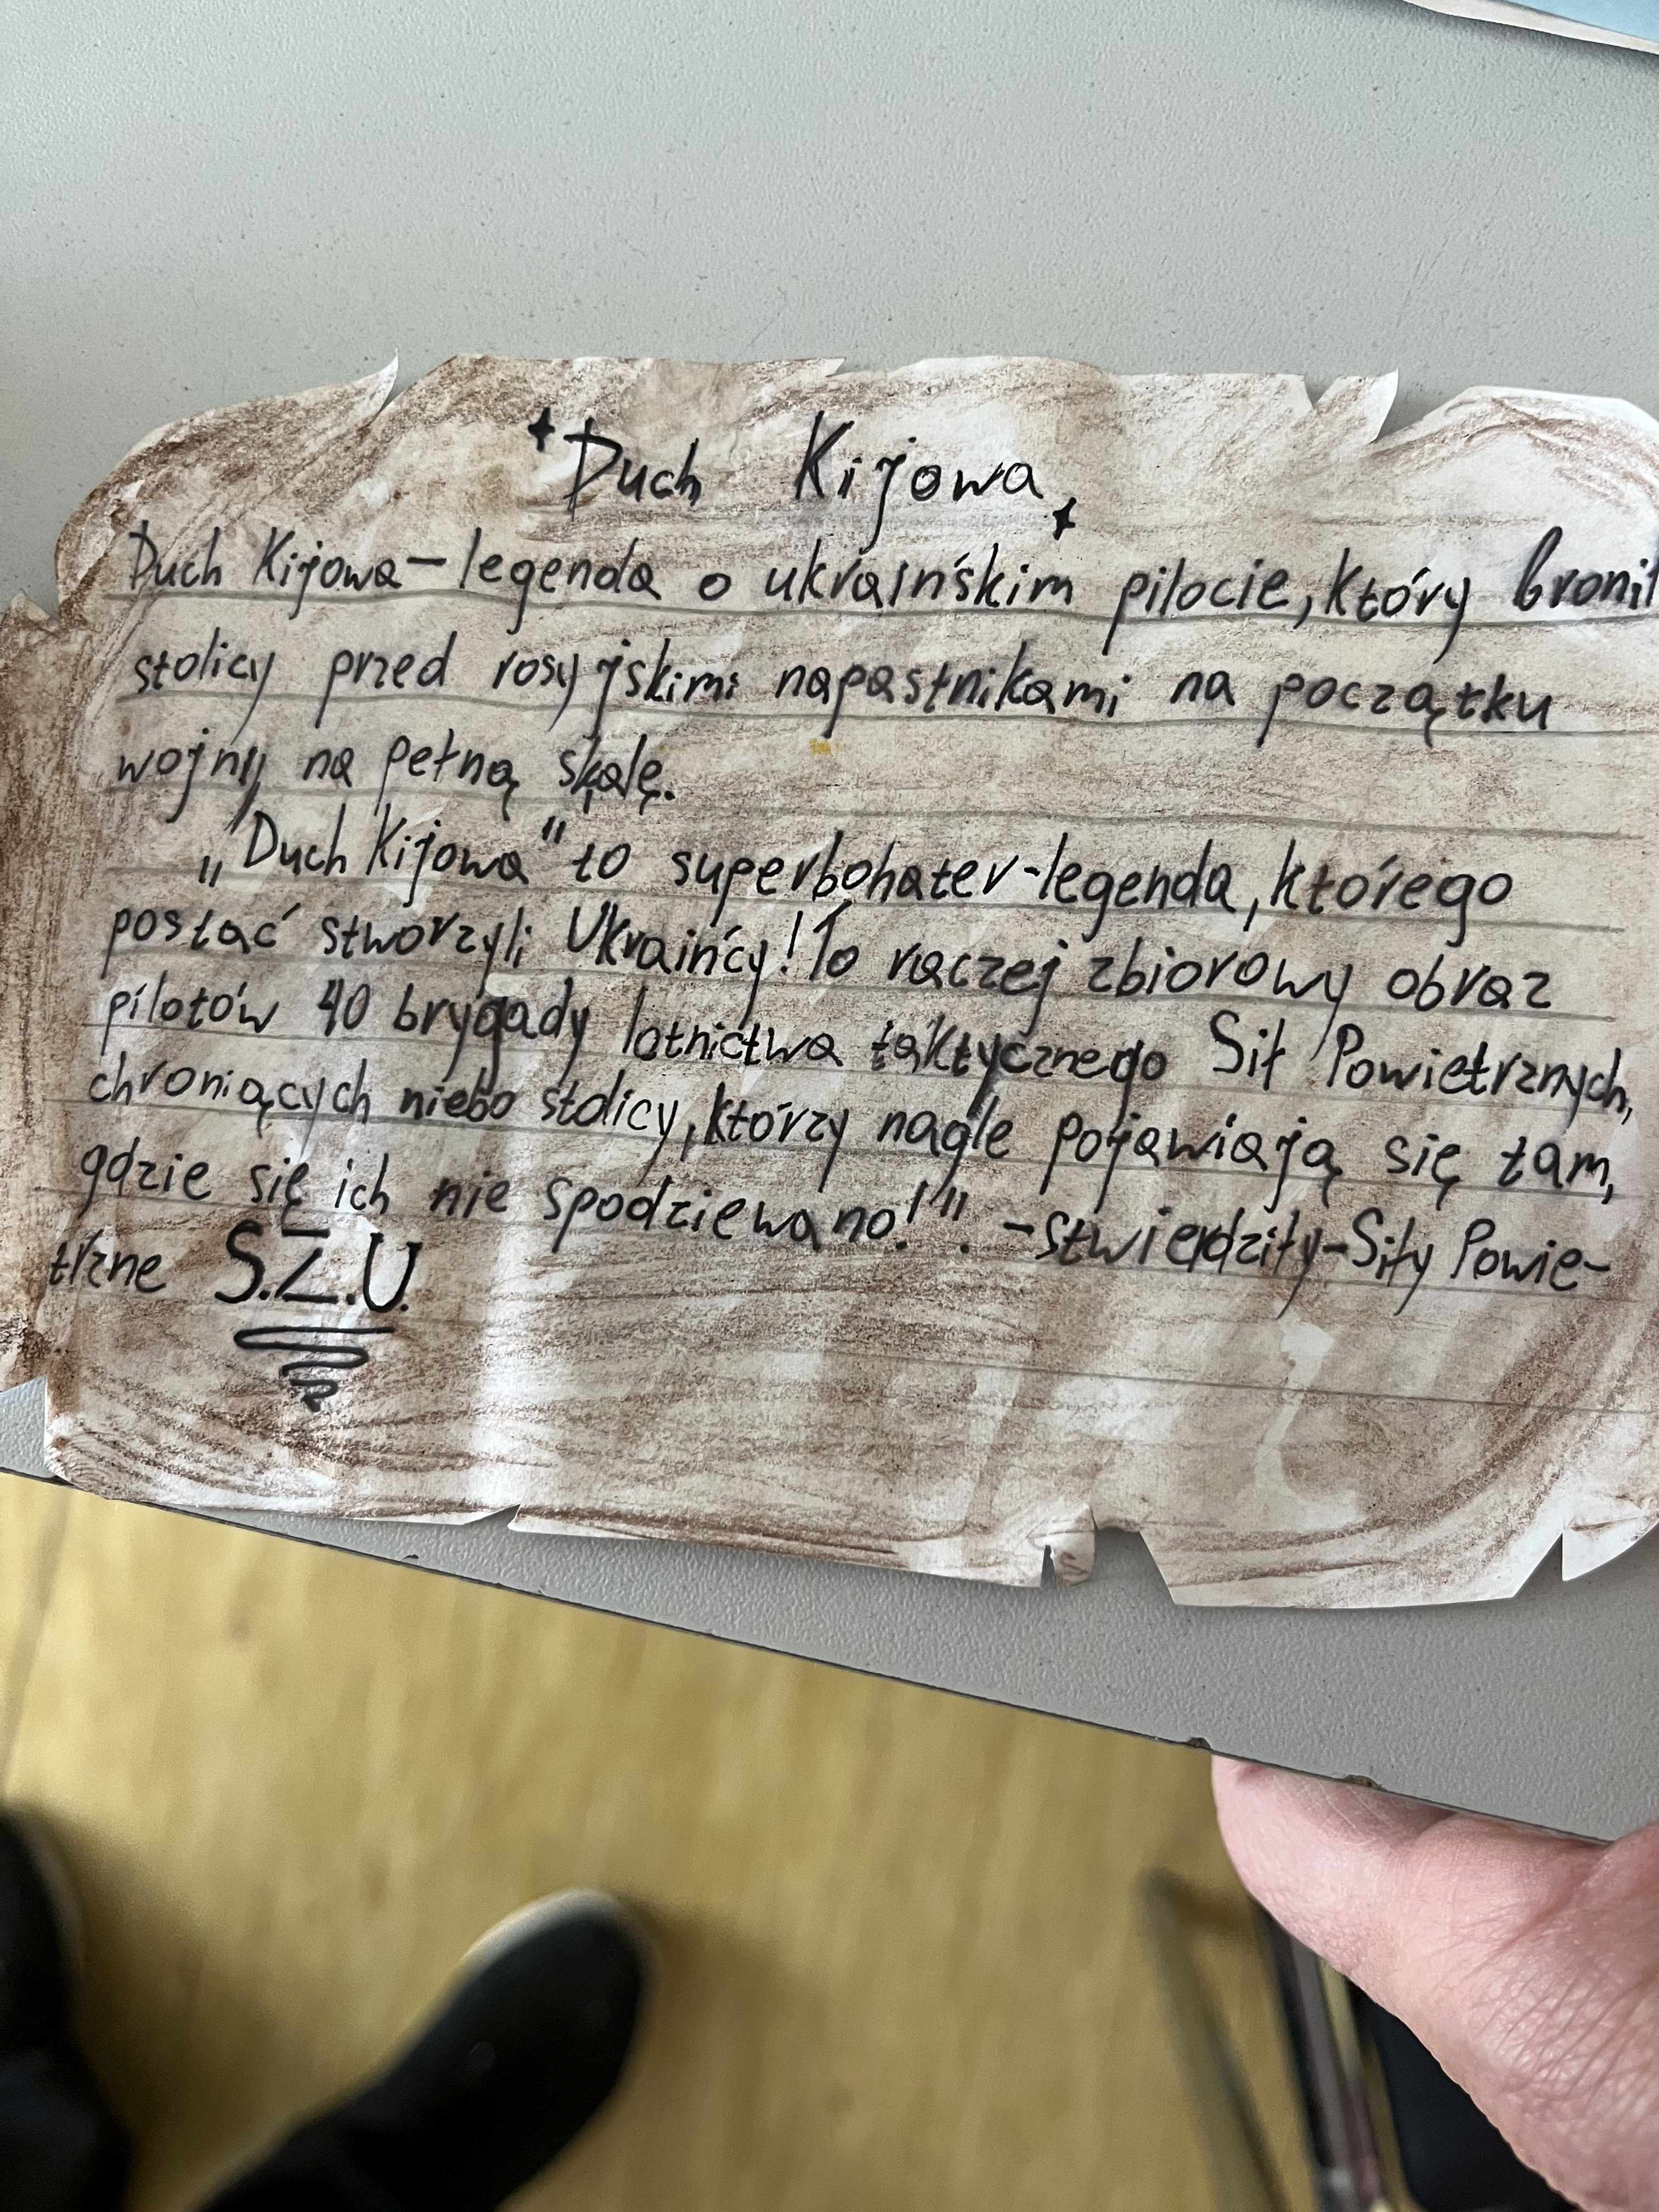 Duch Kijowa
Duch Kijowa – legenda o ukraińskim pilocie, który bronił
stolicy przed rosyjskimi napastnikami na początku
wojny na pełną skalę.
„Duch Kijowa" to superbohater-legenda, którego
postać stworzyli Ukraińcy! To raczej zbiorowy obraz
pilotów 40 brygady lotnictwa taktycznego Sił Powietrznych,
chroniących niebo stolicy, którzy nagle pojawiają się tam,
gdzie się ich nie spodziewano!". – stwierdziły – Siły Powie-
trzne S.Z.U.